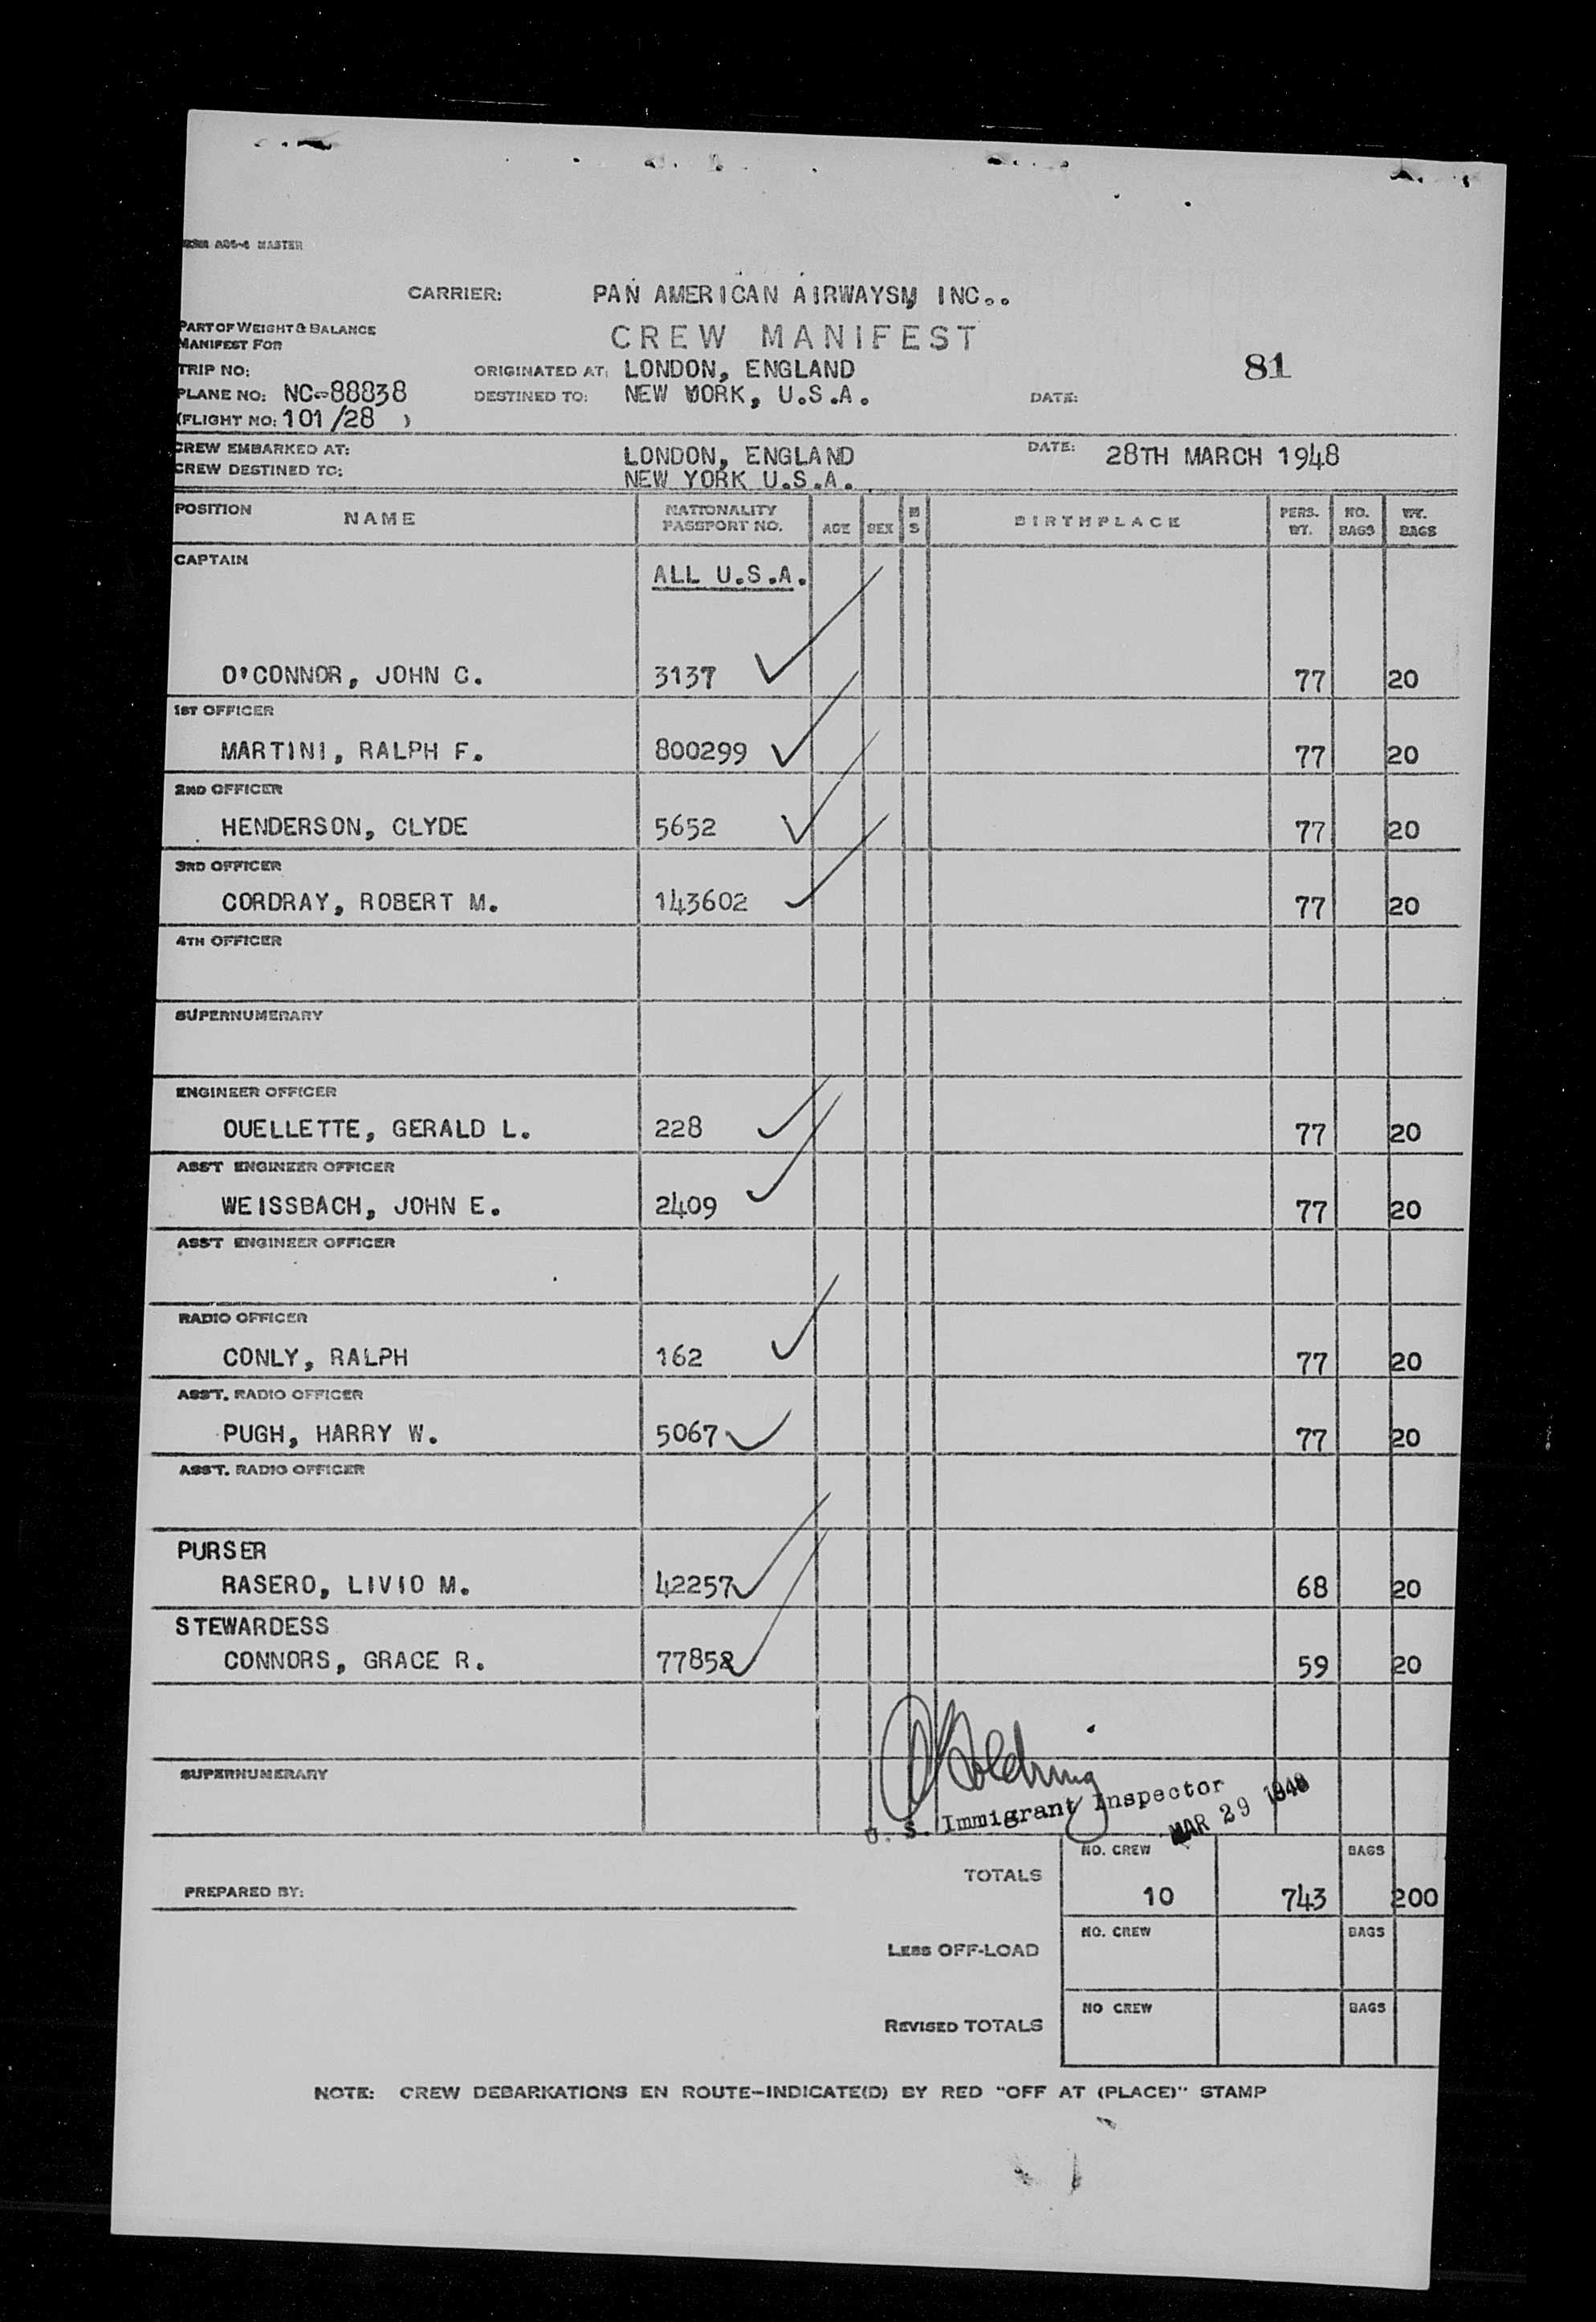 FORM A06-4 MASTER
CARRIER: PAN AMERICAN AIRWAYSM, INC..
PART OF WEIGHT & BALANCE
MANIFEST FOR
CREW MANIFEST
TRIP NO: ORIGINATED AT: LONDON, ENGLAND 81
PLANE NO: NC-88838 DESTINED TO: NEW WORK, U.S.A. DATE:
(FLIGHT NO: 101/28 )
CREW EMBARKED AT: LONDON, ENGLAND DATE: 28TH MARCH 1948
CREW DESTINED TO: NEW YORK U.S.A.
POSITION NAME NATIONALITY PASSPORT NO. AGE SEX M S BIRTHPLACE PERS. WT. NO. BAGS WT. BAGS
CAPTAIN ALL U.S.A.
O'CONNOR, JOHN C. 3137 77 20
1ST OFFICER
MARTINI, RALPH F. 800299 77 20
2ND OFFICER
HENDERSON, CLYDE 5652 77 20
3RD OFFICER
CORDRAY, ROBERT M. 143602 77 20
4TH OFFICER
SUPERNUMERARY
ENGINEER OFFICER
OUELLETTE, GERALD L. 228 77 20
ASS'T ENGINEER OFFICER
WEISSBACH, JOHN E. 2409 77 20
ASS'T ENGINEER OFFICER
RADIO OFFICER
CONLY, RALPH 162 77 20
ASS'T. RADIO OFFICER
PUGH, HARRY W. 5067 77 20
ASS'T. RADIO OFFICER
PURSER
RASERO, LIVIO M. 42257 68 20
STEWARDESS
CONNORS, GRACE R. 77852 59 20
SUPERNUMERARY
U. S. Immigrant Inspector
MAR 29 1948
TOTALS NO. CREW 10 743 BAGS 200
PREPARED BY:
LESS OFF-LOAD NO. CREW BAGS
REVISED TOTALS NO CREW BAGS
NOTE: CREW DEBARKATIONS EN ROUTE-INDICATE(D) BY RED "OFF AT (PLACE)" STAMP